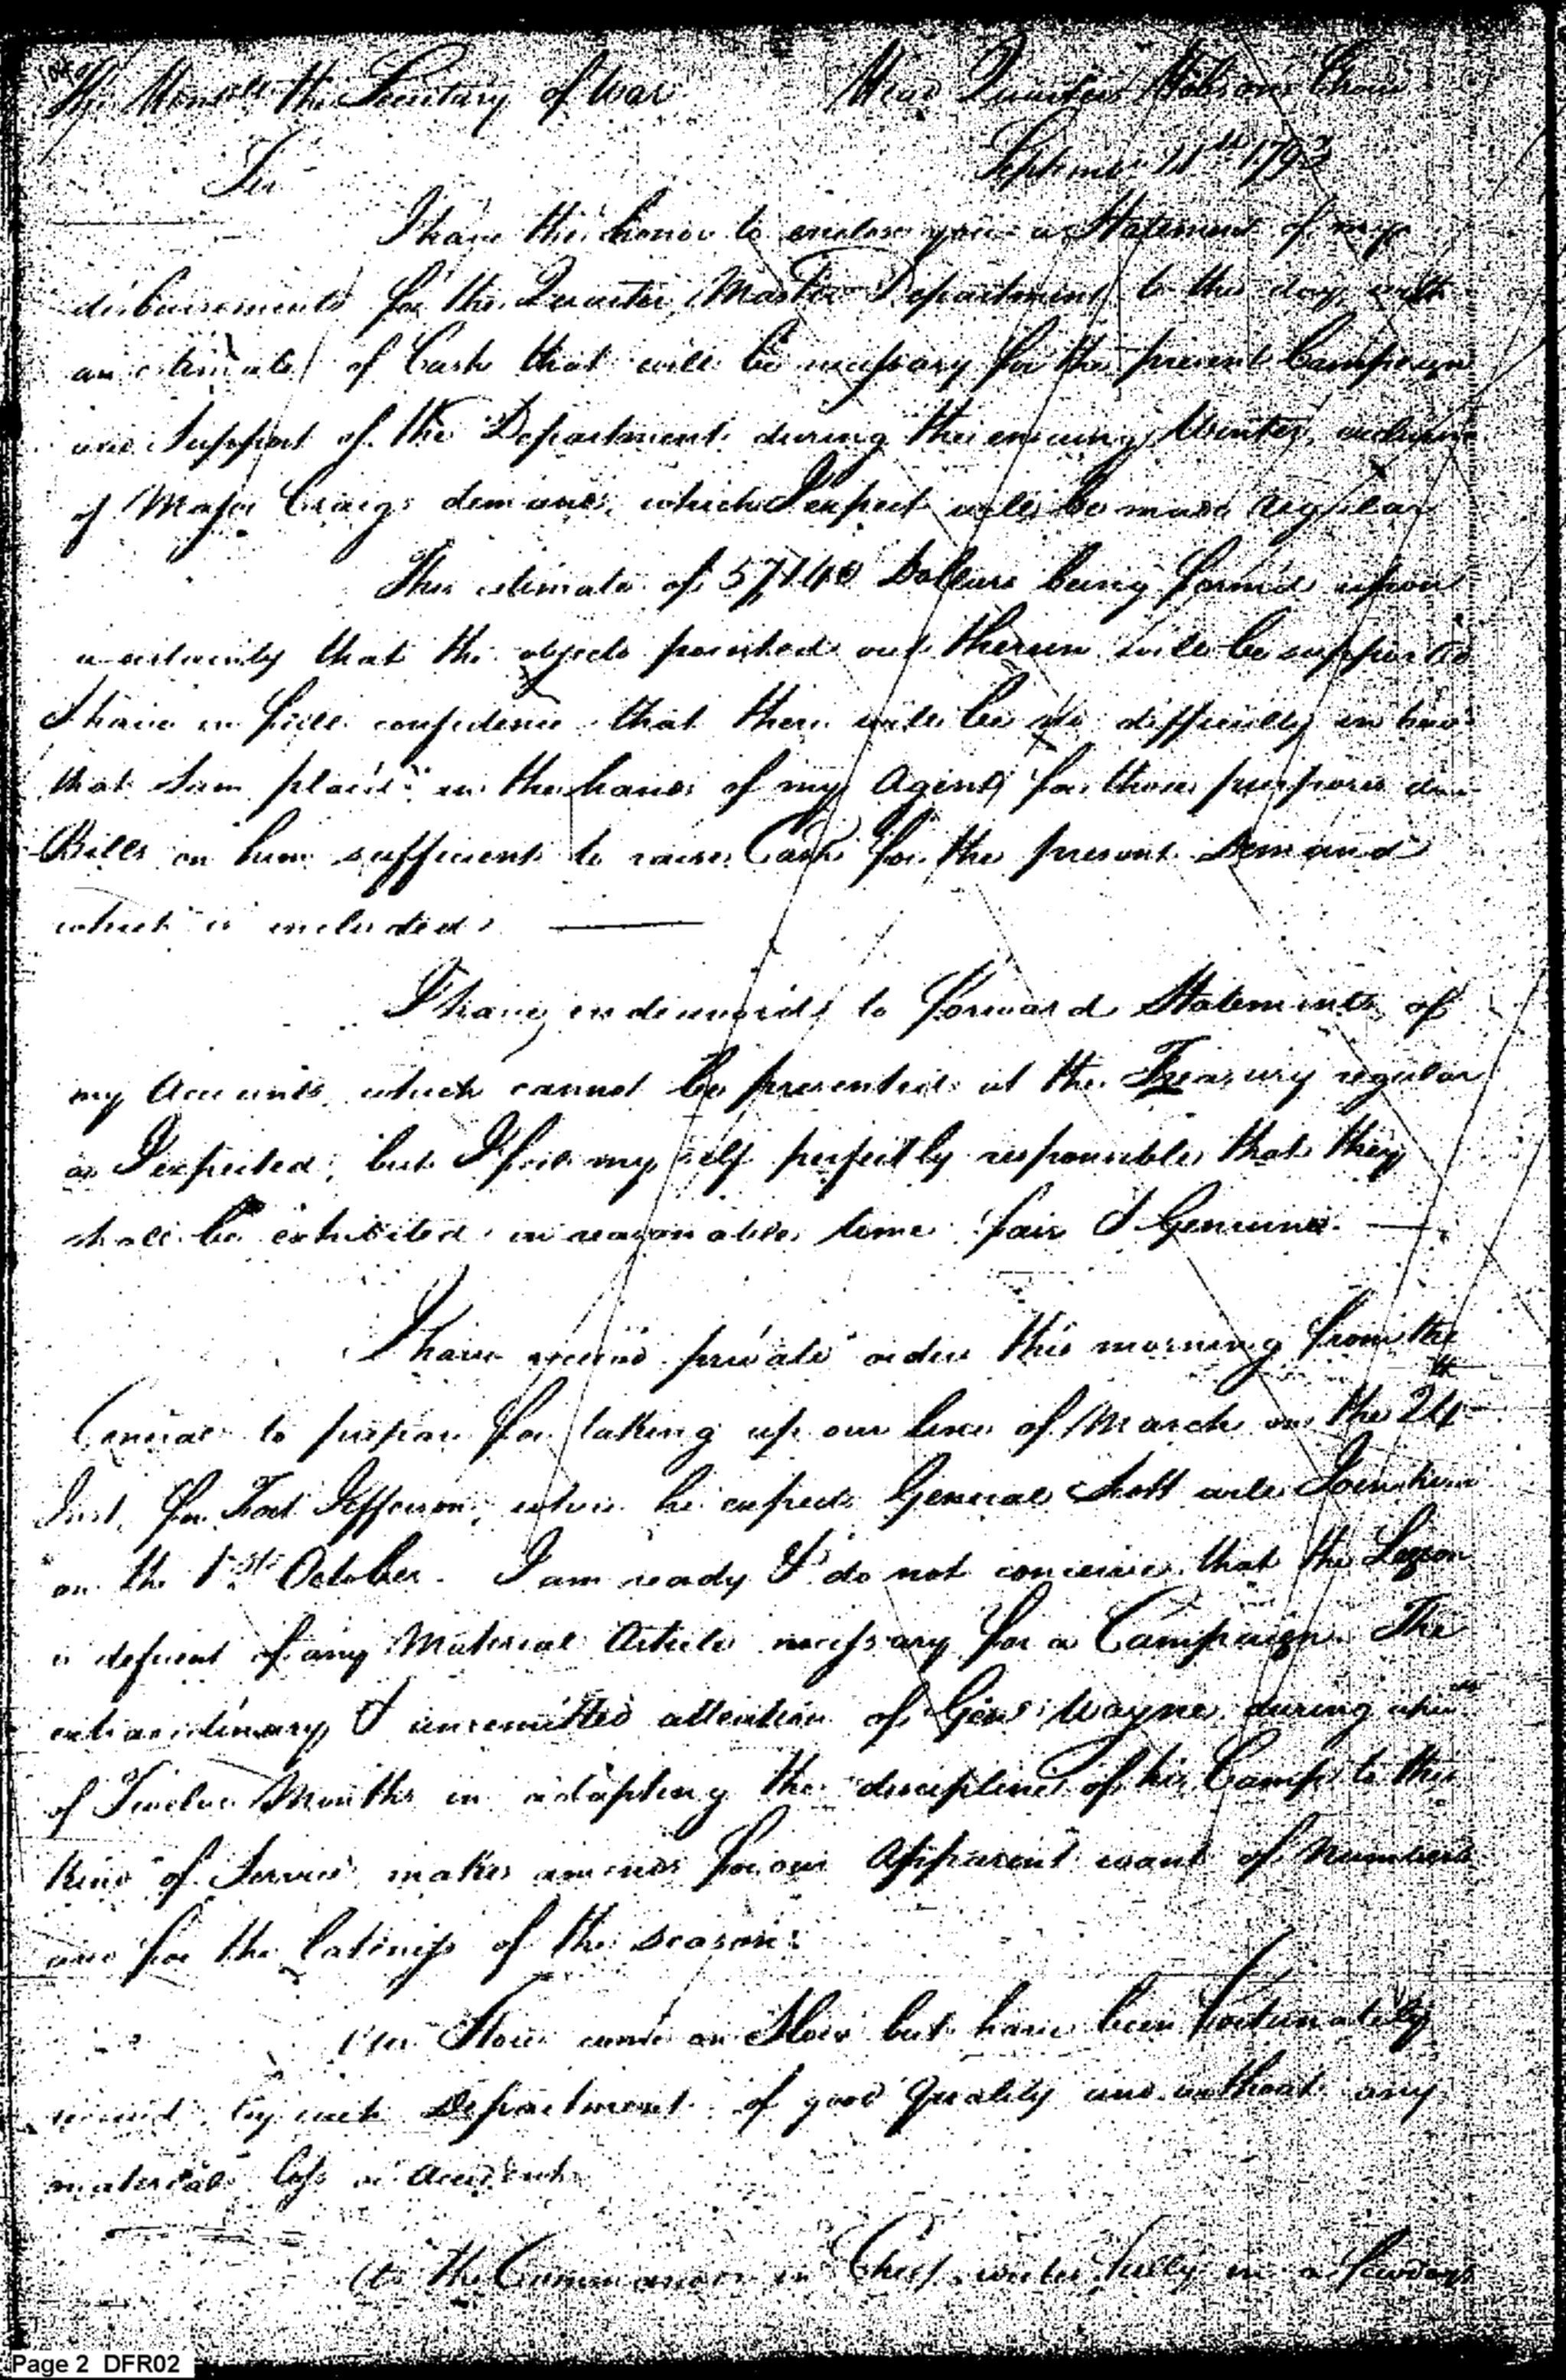 The Honble the Secretary of War Head Quarters Hobsons Choice
September 11th 1793
Sir
I have the honor to enclose you a Statement of my
disbursements for the Quarter Master Department to this day with
an estimate of Cash that will be necessary for the present Campaign
and Support of the Department during the ensuing Winter, exclusive
of Major Craigs demands, which I expect will be made regular
This estimate of 57140 Dollars being formed upon
a certainty that the objects pointed out therein will be supported
I have in full confidence that there will be no difficulty in
that Sum placed in the hands of my Agent for those purposes
Bills on him sufficient to raise Cash for the present Demand
which is included.
I have endeavord to forward Statements of
my Accounts which cannot be presented at the Treasury regular
as I expected, but I feel my self perfectly responsible that they
shall be exhibited in reasonable time fair & Genuine.
I have received private orders this morning from the
General to prepare for taking up our line of March on the 24th
Inst. for Fort Jefferson, where he expects General Scott will Join him
on the 1st October. I am ready & do not conceive that the Legion
is deficient of any Material Article necessary for a Campaign. The
extraordinary & unremitted attention of Genl Wayne during
of Twelve Months in adapting the discipline of his Camp to this
kind of Service makes amends for our Apparent want of Numbers
and for the lateness of the season.
Our Stores came on Slow but have been fortunately
received by each Department of good Quality and without any
material loss or Accident.
the Commander in Chief writes fully in a few days